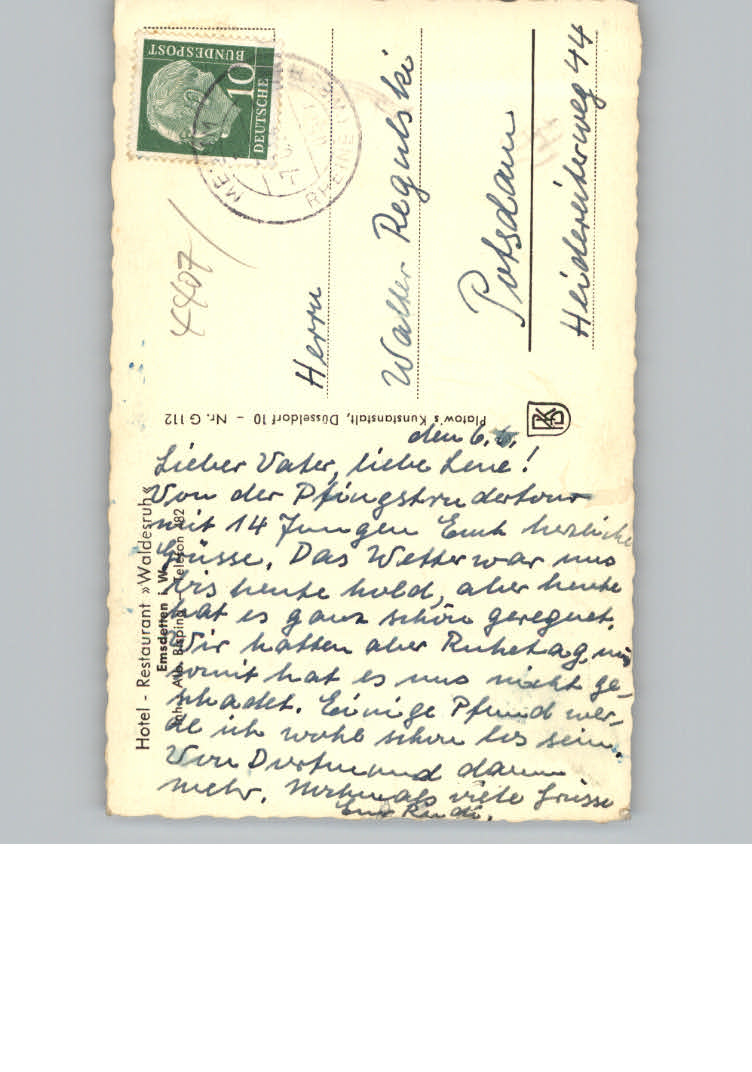 Hotel - Restaurant »Waldesruh«
Emsdetten i. W.
Inh.: Alb. Bisping - Telefon 282
den 6. 6.
Lieber Vater, liebe Lene!
Von der Pfingstrudertour
mit 14 Jungen Euch herzliche
Grüsse. Das Wetter war uns
bis heute hold, aber heute
hat es ganz schön geregnet.
Wir hatten aber Ruhetag, und
somit hat es uns nicht ge-
schadet. Einige Pfund wer-
de ich wohl schon los sein.
Von Dortmund dann
mehr. Nochmals viele Grüsse
Euer Rudi.
Platow's Kunstanstalt, Düsseldorf 10 - Nr. G 112
PKD
DEUTSCHE
BUNDESPOST
10
RHEINE
4407
Herrn
Walter Regulski
Potsdam
Heidereiterweg 44